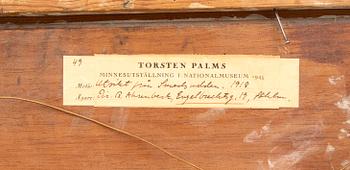 49
TORSTEN PALMS
MINNESUTSTÄLLNING I NATIONALMUSEUM 1945
Motiv: Utsikt från Smedsudden. 1918
Ägare: Dir. A. Ahrenberg, Engelbrechtsg. 19, Sthlm.